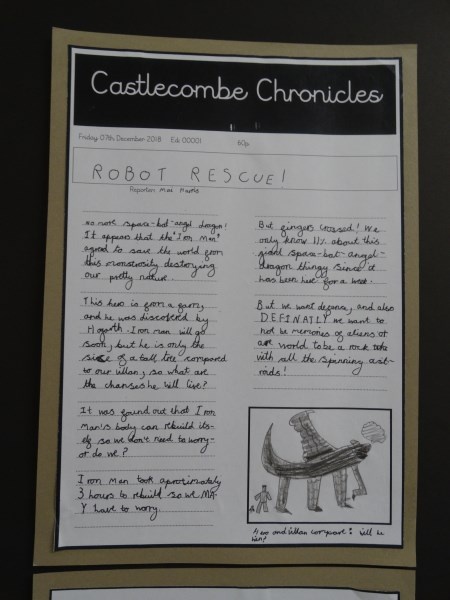 Castlecombe Chronicles
Friday 07th, December 2018 Edi: 00001 60p
ROBOT RESCUE!
Reporter: Max
no more space-bat-angel dragon!
It appears that the "Iron Man"
agreed to save the world from
this monstrosity destorying
our pretty nature.
This hero is from a farm,
and he was discoverd by
Hogarth. Iron man will go
soon, but he is only the
size of a tall tree compared
to our villan, so what are
the chanses he will live?
It was found out that Iron
Man's body can rebuild its-
elf so we don't need to worry-
or do we?
Iron Man took aproximately
3 hours to rebuild so we MA-
Y have to worry.
But fingers crossed! We
only know 1% about this
giant space-bat-angel-
dragon thingy since it
has been here for a week.
But we want defence, and also
DEFINATLY we want to
not be memories of aliens or
our world to be a rock take
with all the spinning ast-
roids!
Hero and villan compare: will he
win?